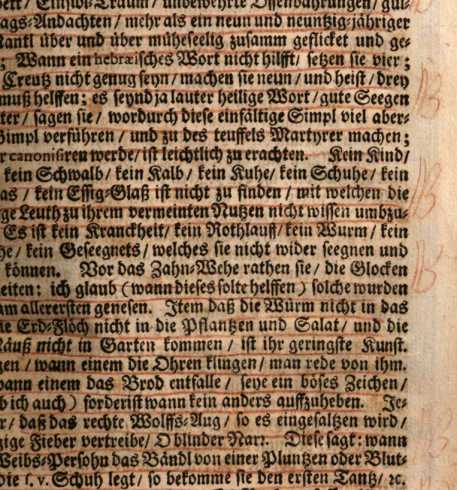 Bett / Einsidl-Traum / unbewehrte Offenbahrungen / gul-
tags-Andachten / mehr als ein neun und neuntzig-jähriger
Mantl über und über müheseelig zusamm geflicket und ge-
; Wann ein hebræisches Wort nicht hilfft / setzen sie vier ;
Creutz nicht genug seyn / machen sie neun / und heist / drey
muß helffen ; es seynd ja lauter heilige Wort / gute Seegen
ter / sagen sie / wordurch diese einfältige Simpl viel aber-
Simpl verführen / und zu des teuffels Martyrer machen ;
r canonisiren werde / ist leichtlich zu erachten. Kein Kind /
/ kein Schwalb / kein Kalb / kein Kuhe / kein Schuhe / kein
as / kein Essig-Glaß ist nicht zu finden / mit welchen die
ge Leuth zu ihrem vermeinten Nutzen nicht wissen umbzu-
Es ist kein Kranckheit / kein Rothlauff / kein Wurm / kein
he / kein Geseegnets / welches sie nicht wider seegnen und
können. Vor das Zahn-Wehe rathen sie / die Glocken
eiten : ich glaub ( wann dieses solte helffen ) solche wurden
am allerersten genesen. Item daß die Würm nicht in das
ie Erd-Flöch nicht in die Pflantzen und Salat / und die
Mäuß nicht in Garten kommen / ist ihr geringste Kunst.
gen / wann einem die Ohren klingen / man rede von ihm.
wann einem das Brod entfalle / seye ein böses Zeichen /
b ich auch ) forderist wann kein anders auffzuheben. Je-
r / daß das rechte Wolffs-Aug / so es eingesaltzen wird /
gige Fieber vertreibe / O blinder Narr. Diese sagt : wann
Weibs-Persohn das Bändl von einer Pluntzen oder Blut-
die s. v. Schuh legt / so bekomme sie den ersten Tantz / ꝛc.